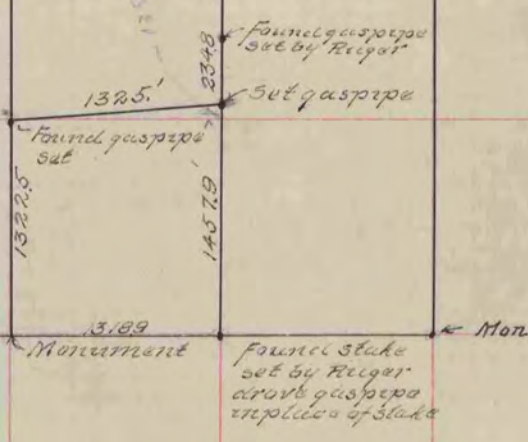 Found gaspipe
set by Rugar
234.8
1325.'
Set gaspipe
Found gaspipe
set
1322.5
1457.9'
1318.9
Monument
Found stake
set by Rugar
drove gaspipe
in place of stake
Mon